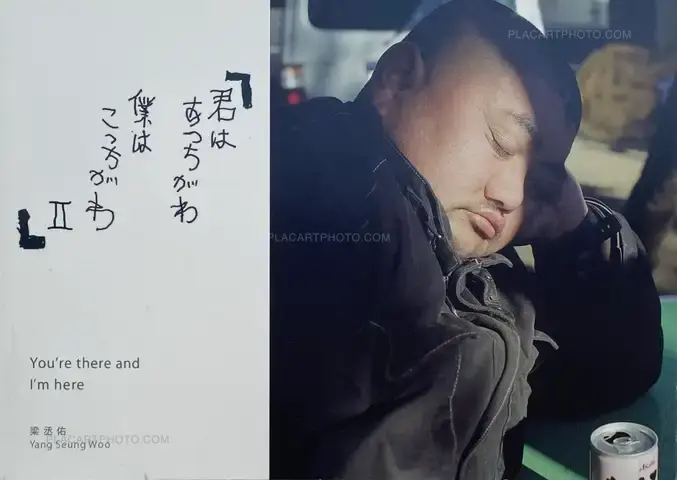 「君は
あっちがわ
僕は
こっちがわ
II」
You're there and
I'm here
梁丞佑
Yang Seung Woo
PLACARTPHOTO.COM
PLACARTPHOTO.COM
PLACARTPHOTO.COM
Asahi